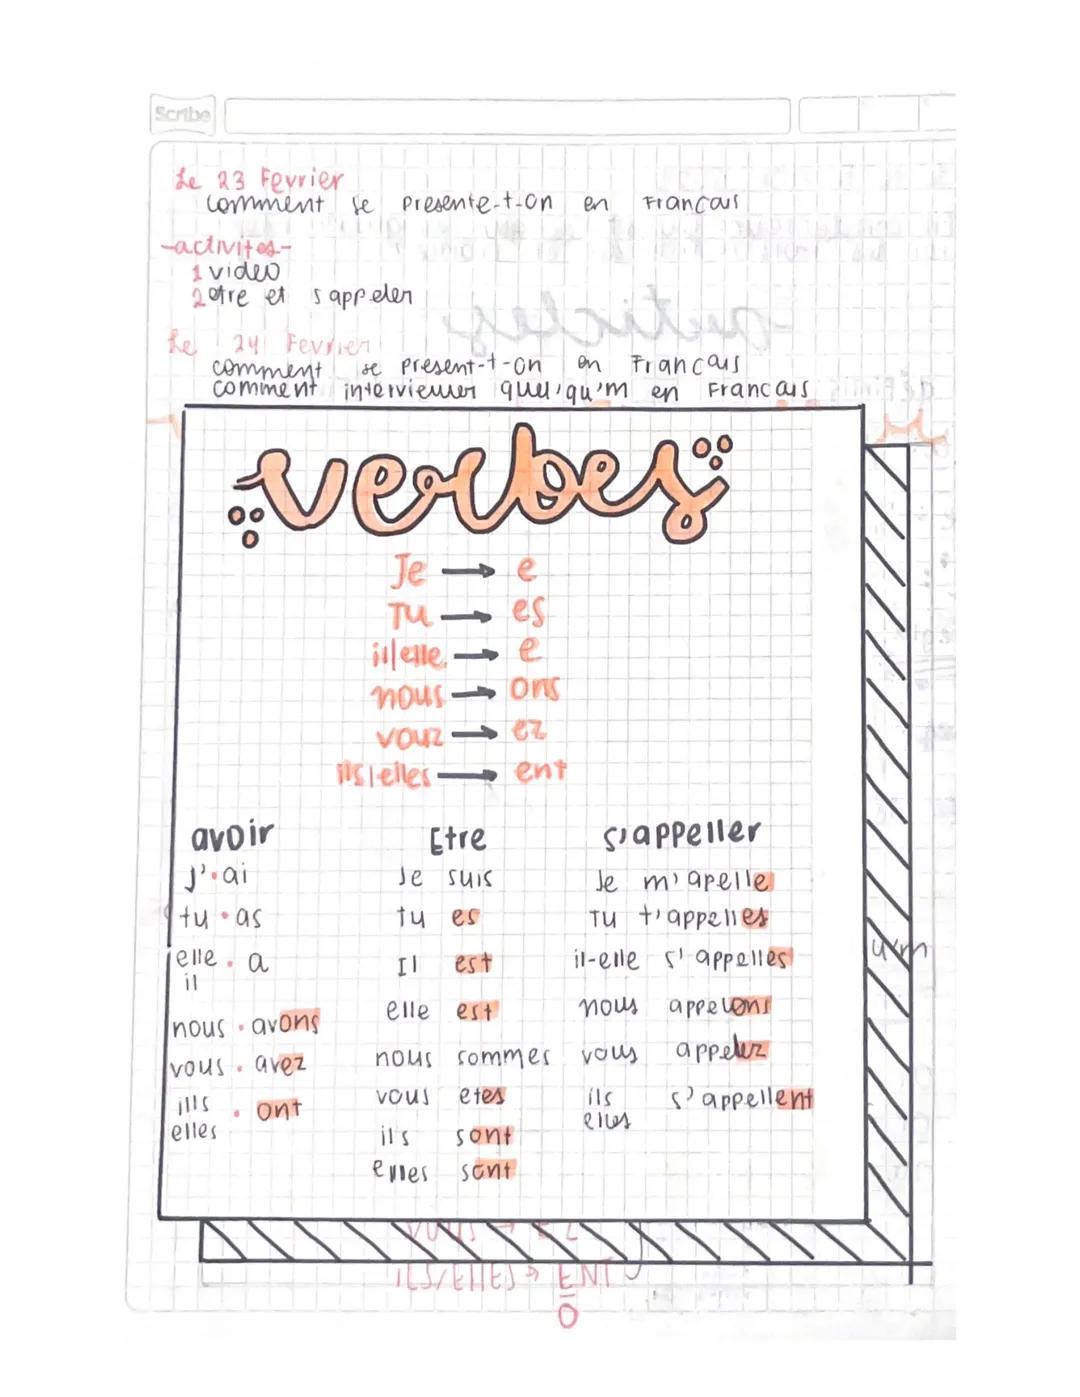 Scribe
Le 23 Fevrier
comment se presente-t-on en Francais
-activites-
1 video
2 etre et s'appeler
Le 24 Fevrier
comment se present-t-on en Francais
comment interviewer quelqu'm en Francais
verbes
Je → e
Tu → es
il|elle. → e
nous → ons
vouz → ez
ils|elles → ent
avoir
j'·ai
tu · as
elle · a
il
nous · avons
vous · avez
ills · ont
elles
Etre
Je suis
tu es
Il est
elle est
nous sommes
vous etes
ils sont
elles sont
s'appeller
Je m'apelle
Tu t'appelles
il-elle s'appelles
nous appelons
vous appelez
ils s'appellent
elles
ILS/ELLES → ENT